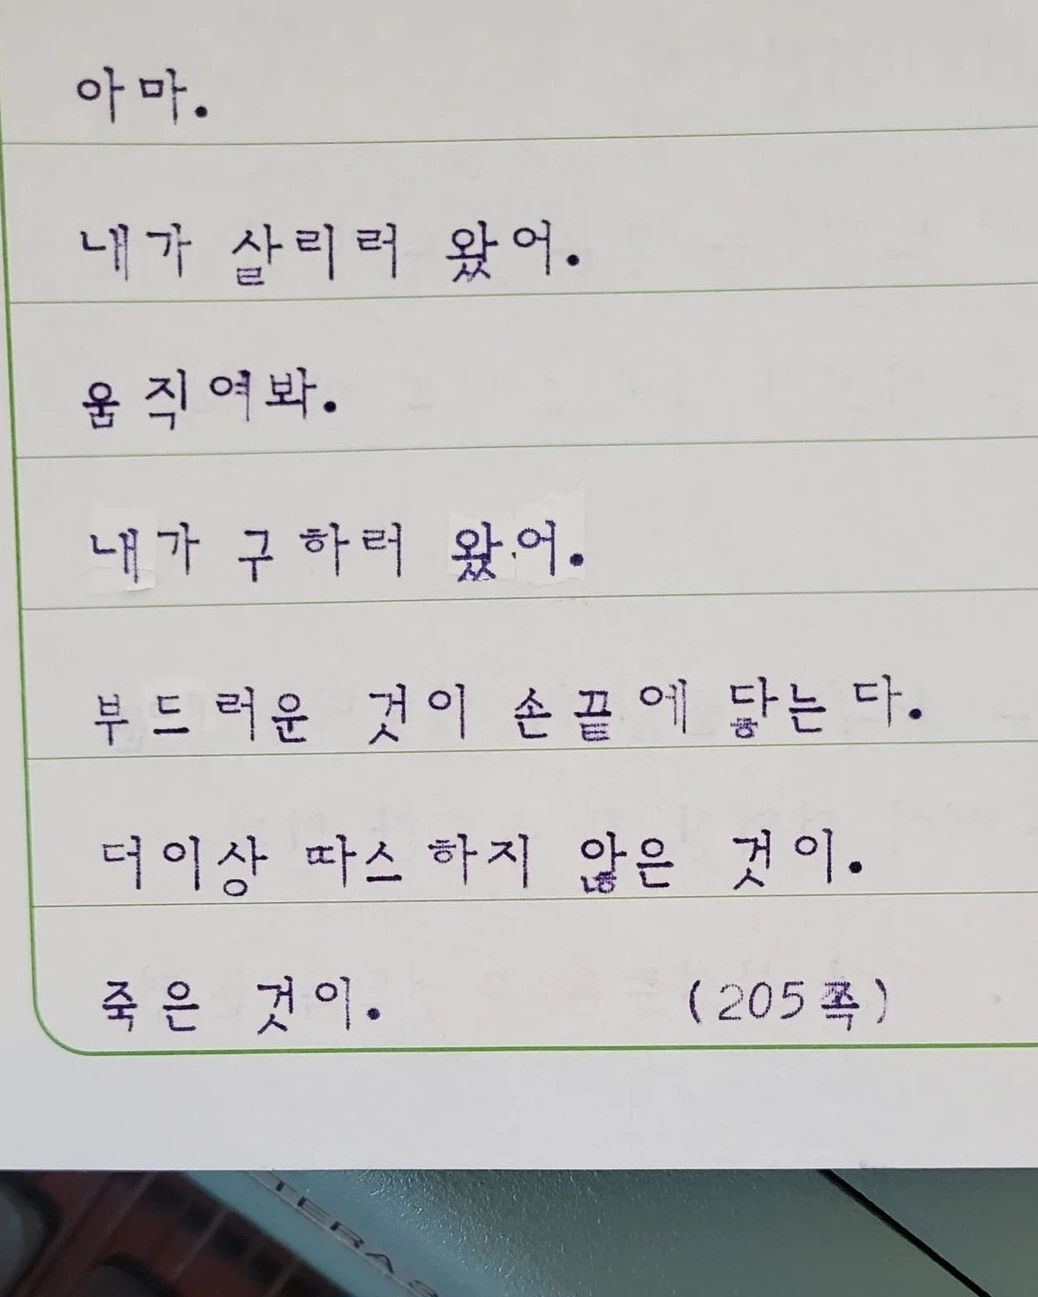 아마.
내가 살리러 왔어.
움직여봐.
내가 구하러 왔어.
부드러운 것이 손끝에 닿는다.
더이상 따스하지 않은 것이.
죽은 것이. (205쪽)